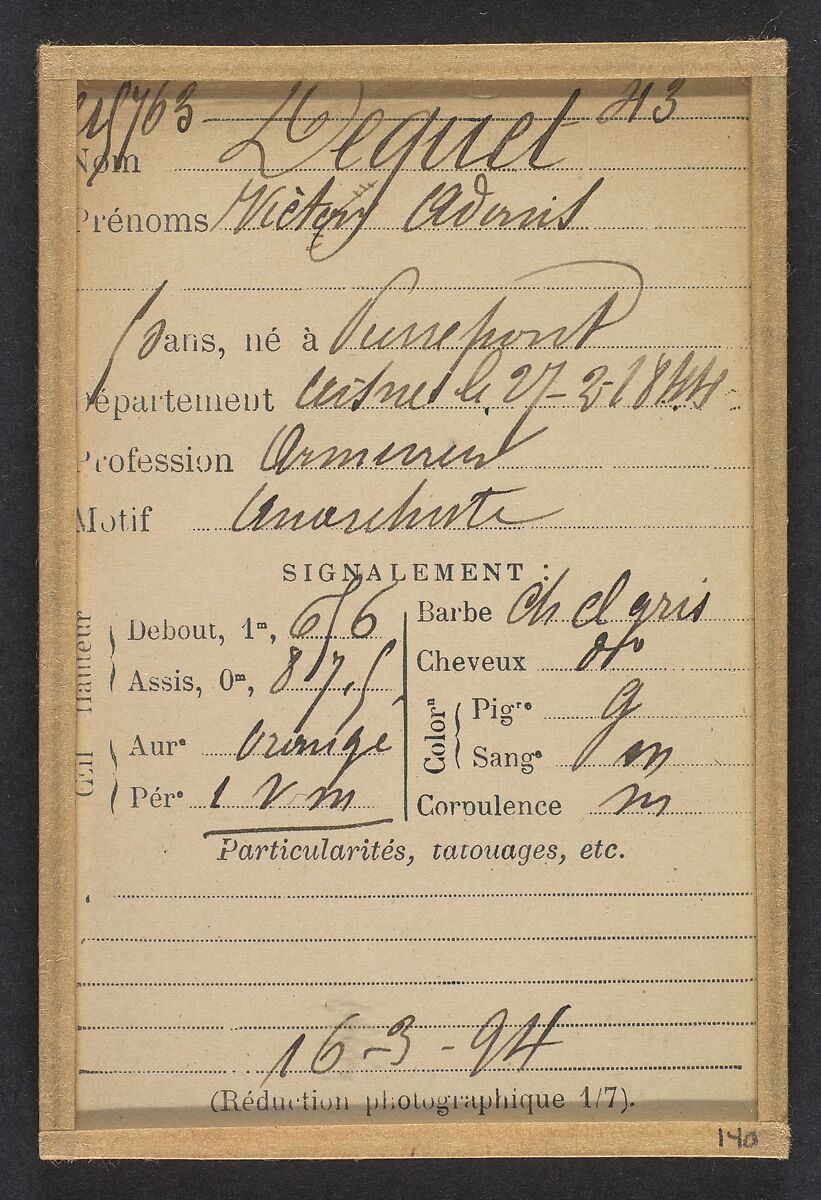 43
Nom Dequet
Prénoms Victor Adonis
ans, né à Pierrepont
Département Aisne le 27-2-1844
Profession Armurier
Motif Anarchiste
SIGNALEMENT :
Hauteur
Debout, 1m, 656
Assis, 0m, 87,5
Œil
Aure orange
Pére 1 v m
Barbe Ch cl gris
Cheveux do
Colorn
Pigre g
Sange m
Corpulence m
Particularités, tatouages, etc.
16-3-94
(Réduction photographique 1/7).
140